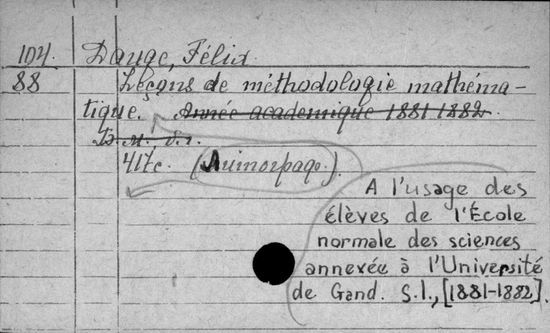 104. Dauge, Félix
88 Leçons de méthodologie mathéma-
tique. Année academique 1881-1882.
S. l.,
417c. (Autogr.).
A l'usage des
élèves de l'École
normale des sciences
annexée à l'Université
de Gand. S.l., [1881-1882].